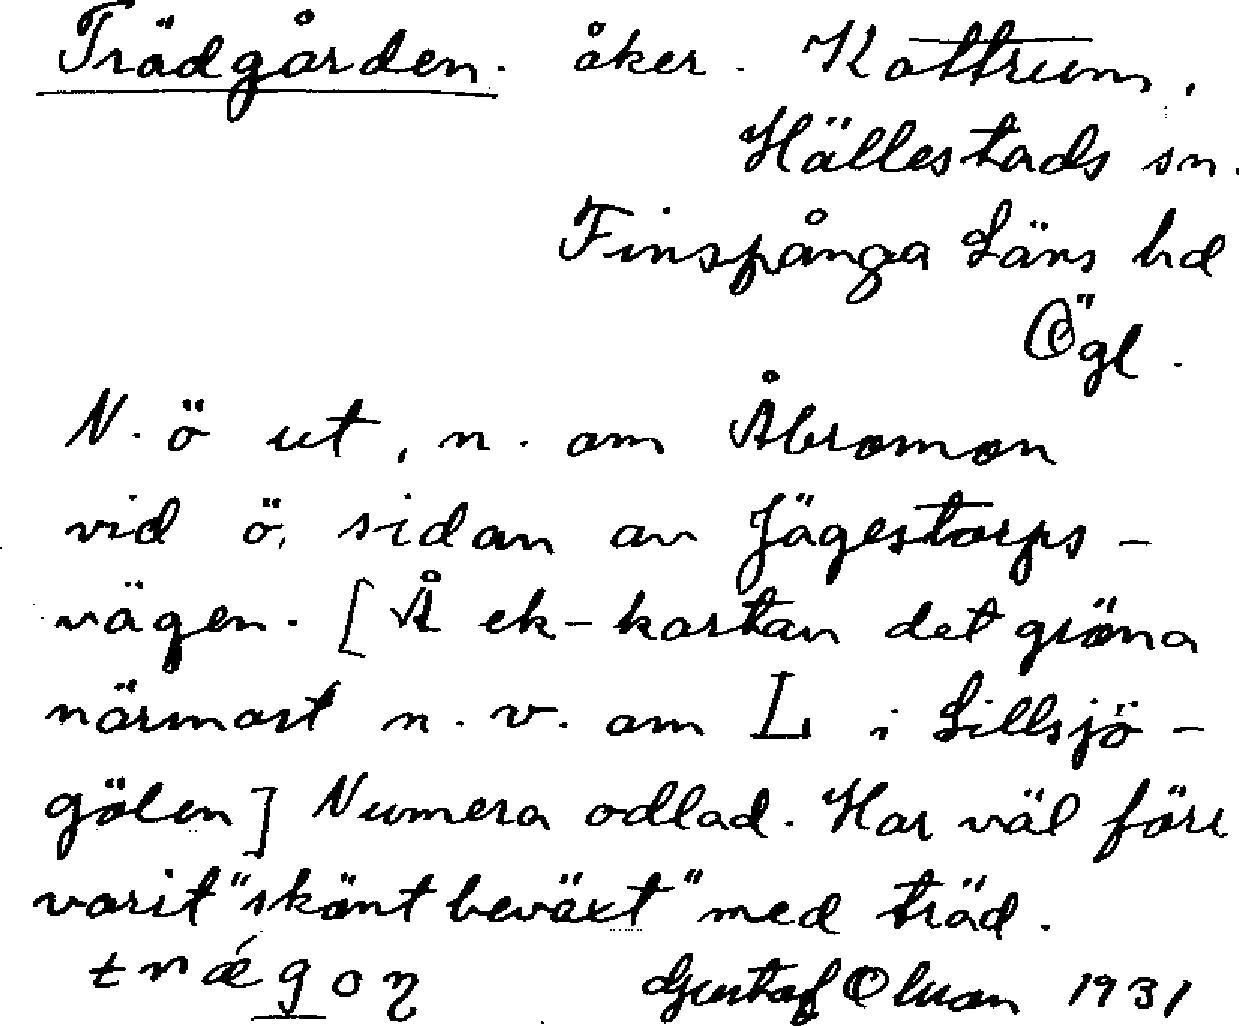 Trädgården. åker. Kattrum,
Hällestads sn.
Finspånga Läns hd
Ögl.
N. ö ut, n. om Åbromon
vid ö. sidan av Jägestorps-
vägen. [Å ek-kartan det gröna
närmast n.v. om L i Lillsjö-
gölen] Numera odlad. Har väl förr
varit "skönt beväxt" med träd.
Gustaf Olson 1931